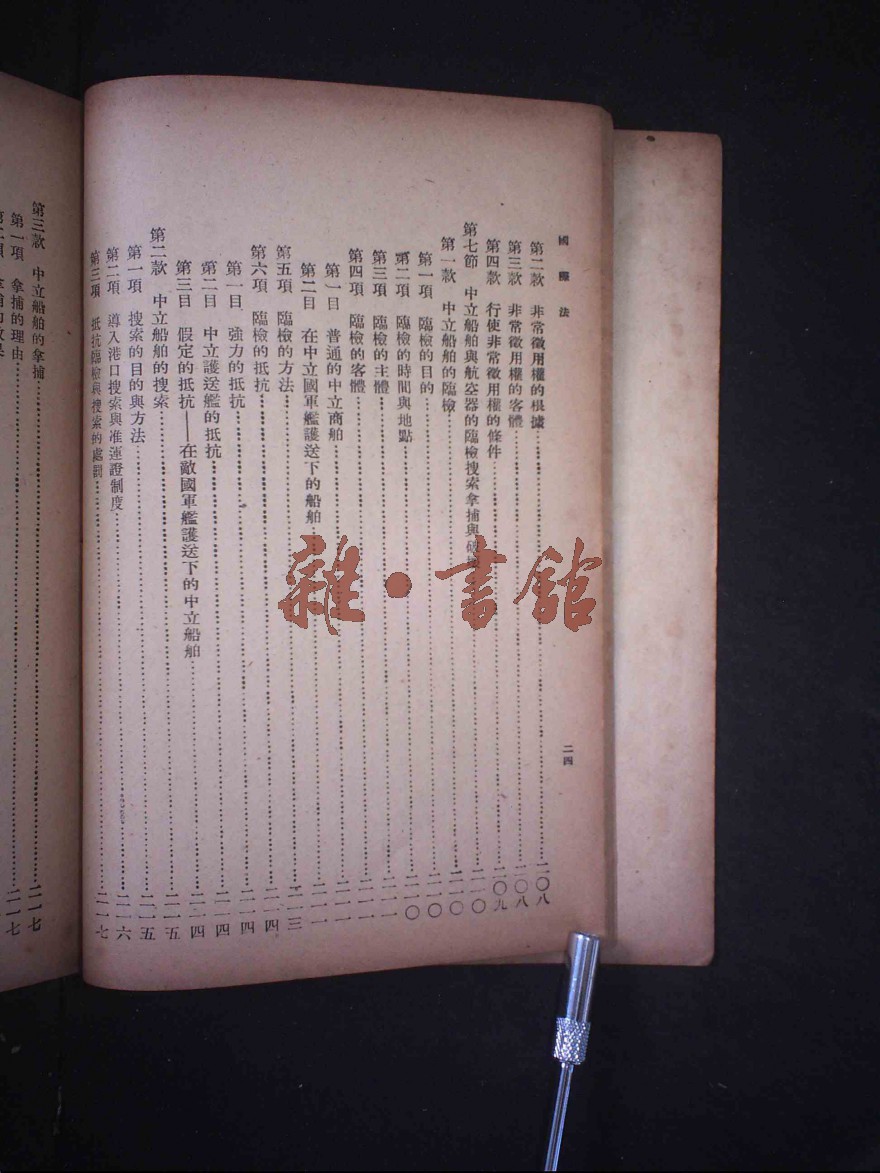 國際法
二四
第二款 非常徵用權的根據……二〇八
第三款 非常徵用權的客體……二〇八
第四款 行使非常徵用權的條件……二〇九
第七節 中立船舶與航空器的臨檢搜索拿捕與破……二一〇
第一款 中立船舶的臨檢……二一〇
第一項 臨檢的目的……二一〇
第二項 臨檢的時間與地點……二一〇
第三項 臨檢的主體……二一一
第四項 臨檢的客體……二一一
第一目 普通的中立商舶……二一一
第二目 在中立國軍艦護送下的船舶……二一一
第五項 臨檢的方法……二一三
第六項 臨檢的抵抗……二一四
第一目 強力的抵抗……二一四
第二目 中立護送艦的抵抗……二一四
第三目 假定的抵抗——在敵國軍艦護送下的中立船舶……二一四
第二款 中立船舶的搜索……二一五
第一項 搜索的目的與方法……二一五
第二項 導入港口搜索與准運證制度……二一六
第三項 抵抗臨檢與搜索的處罰……二一七
第三款 中立船舶的拿捕……二一七
第一項 拿捕的理由……二一七
雜·書館